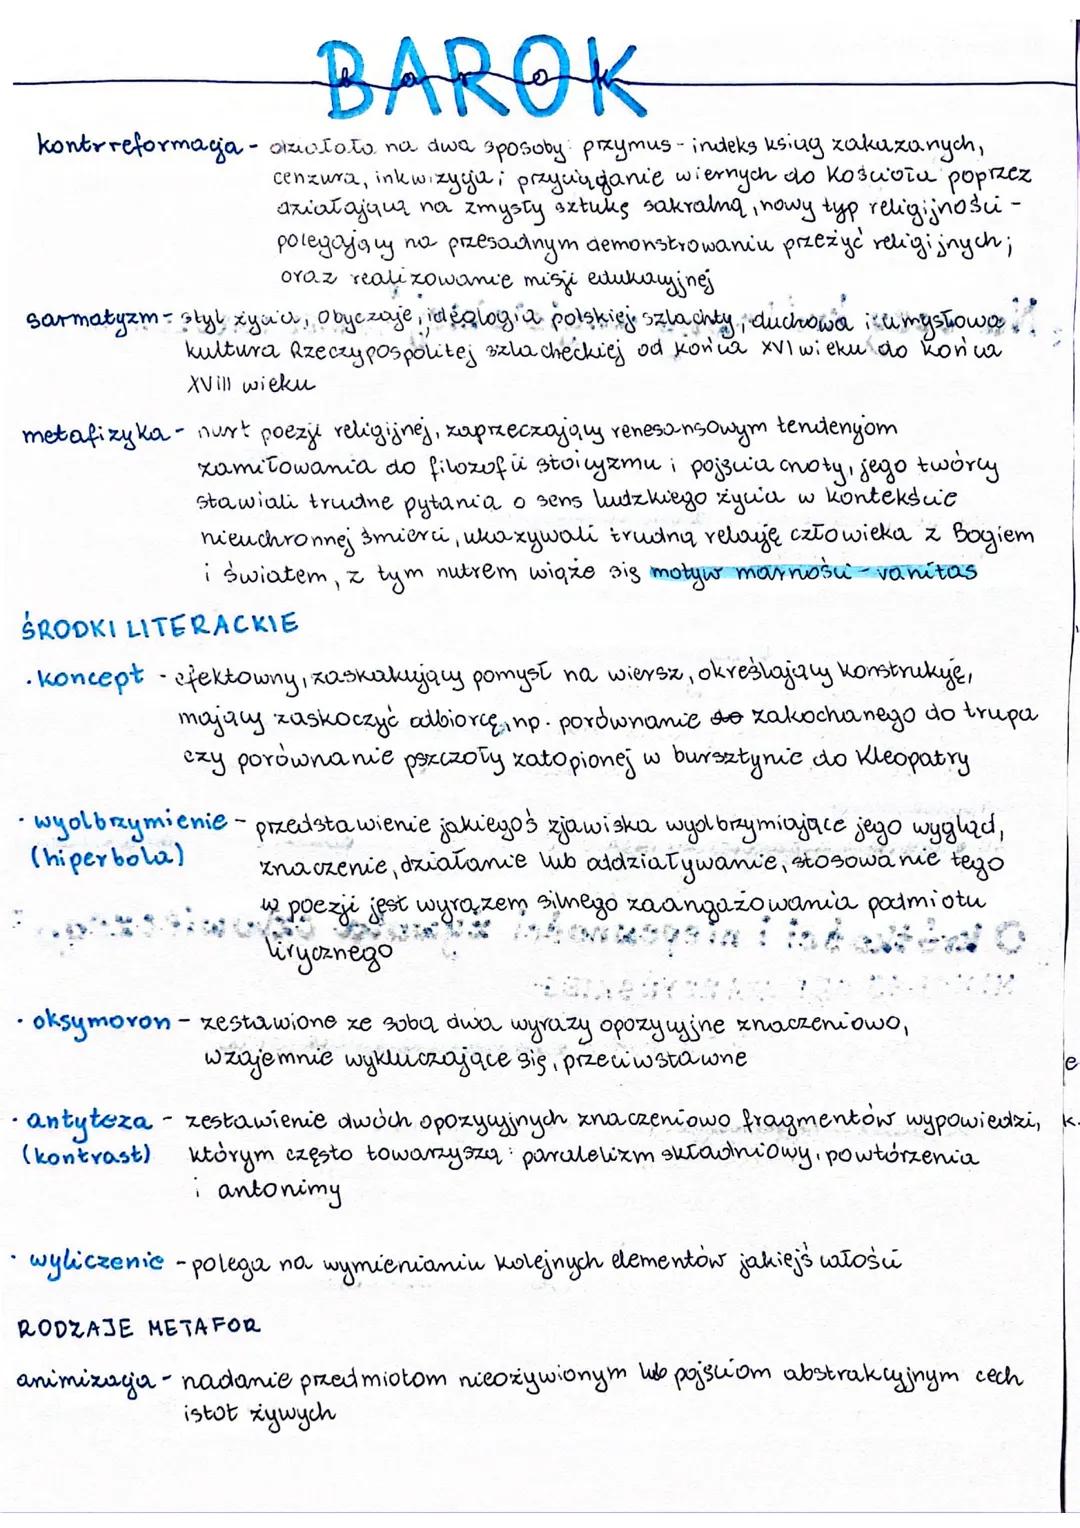 BAROK
Barok
kontrreformacja - działała na dwa sposoby: przymus - indeks ksiąg zakazanych,
cenzura, inkwizycja; przyciąganie wiernych do Kościoła poprzez
działającą na zmysły sztukę sakralną, nowy typ religijności -
polegający na przesadnym demonstrowaniu przeżyć religijnych;
oraz realizowanie misji edukacyjnej
sarmatyzm - styl życia, obyczaje, ideologia polskiej szlachty, duchowa i umysłowa
kultura Rzeczypospolitej szlacheckiej od końca XVI wieku do końca
XVIII wieku
metafizyka - nurt poezji religijnej, zaprzeczający renesansowym tendencjom
zamiłowania do filozofii stoicyzmu i pojęcia cnoty, jego twórcy
stawiali trudne pytania o sens ludzkiego życia w kontekście
nieuchronnej śmierci, ukazywali trudną relację człowieka z Bogiem
i światem, z tym nutrem wiąże się motyw marności - vanitas
ŚRODKI LITERACKIE
• koncept - efektowny, zaskakujący pomysł na wiersz, określający konstrukcję,
mający zaskoczyć odbiorcę, np. porównanie do zakochanego do trupa
czy porównanie pszczoły zatopionej w bursztynie do Kleopatry
• wyolbrzymienie - przedstawienie jakiegoś zjawiska wyolbrzymiające jego wygląd,
(hiperbola) znaczenie, działanie lub oddziaływanie, stosowanie tego
w poezji jest wyrazem silnego zaangażowania podmiotu
lirycznego
• oksymoron - zestawione ze sobą dwa wyrazy opozycyjne znaczeniowo,
wzajemnie wykluczające się, przeciwstawne
• antyteza - zestawienie dwóch opozycyjnych znaczeniowo fragmentów wypowiedzi,
(kontrast) którym często towarzyszą: paralelizm składniowy, powtórzenia
i antonimy
• wyliczenie - polega na wymienianiu kolejnych elementów jakiejś całości
RODZAJE METAFOR
animizacja - nadanie przedmiotom nieożywionym lub pojęciom abstrakcyjnym cech
istot żywych